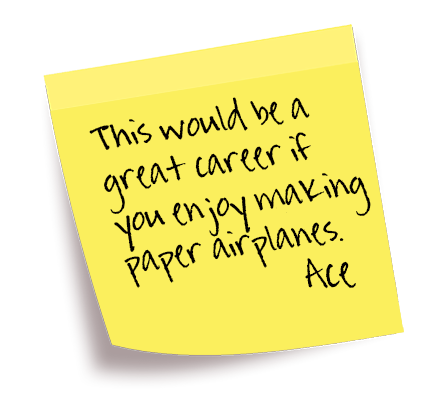 This would be a
great career if
you enjoy making
paper airplanes.
Ace